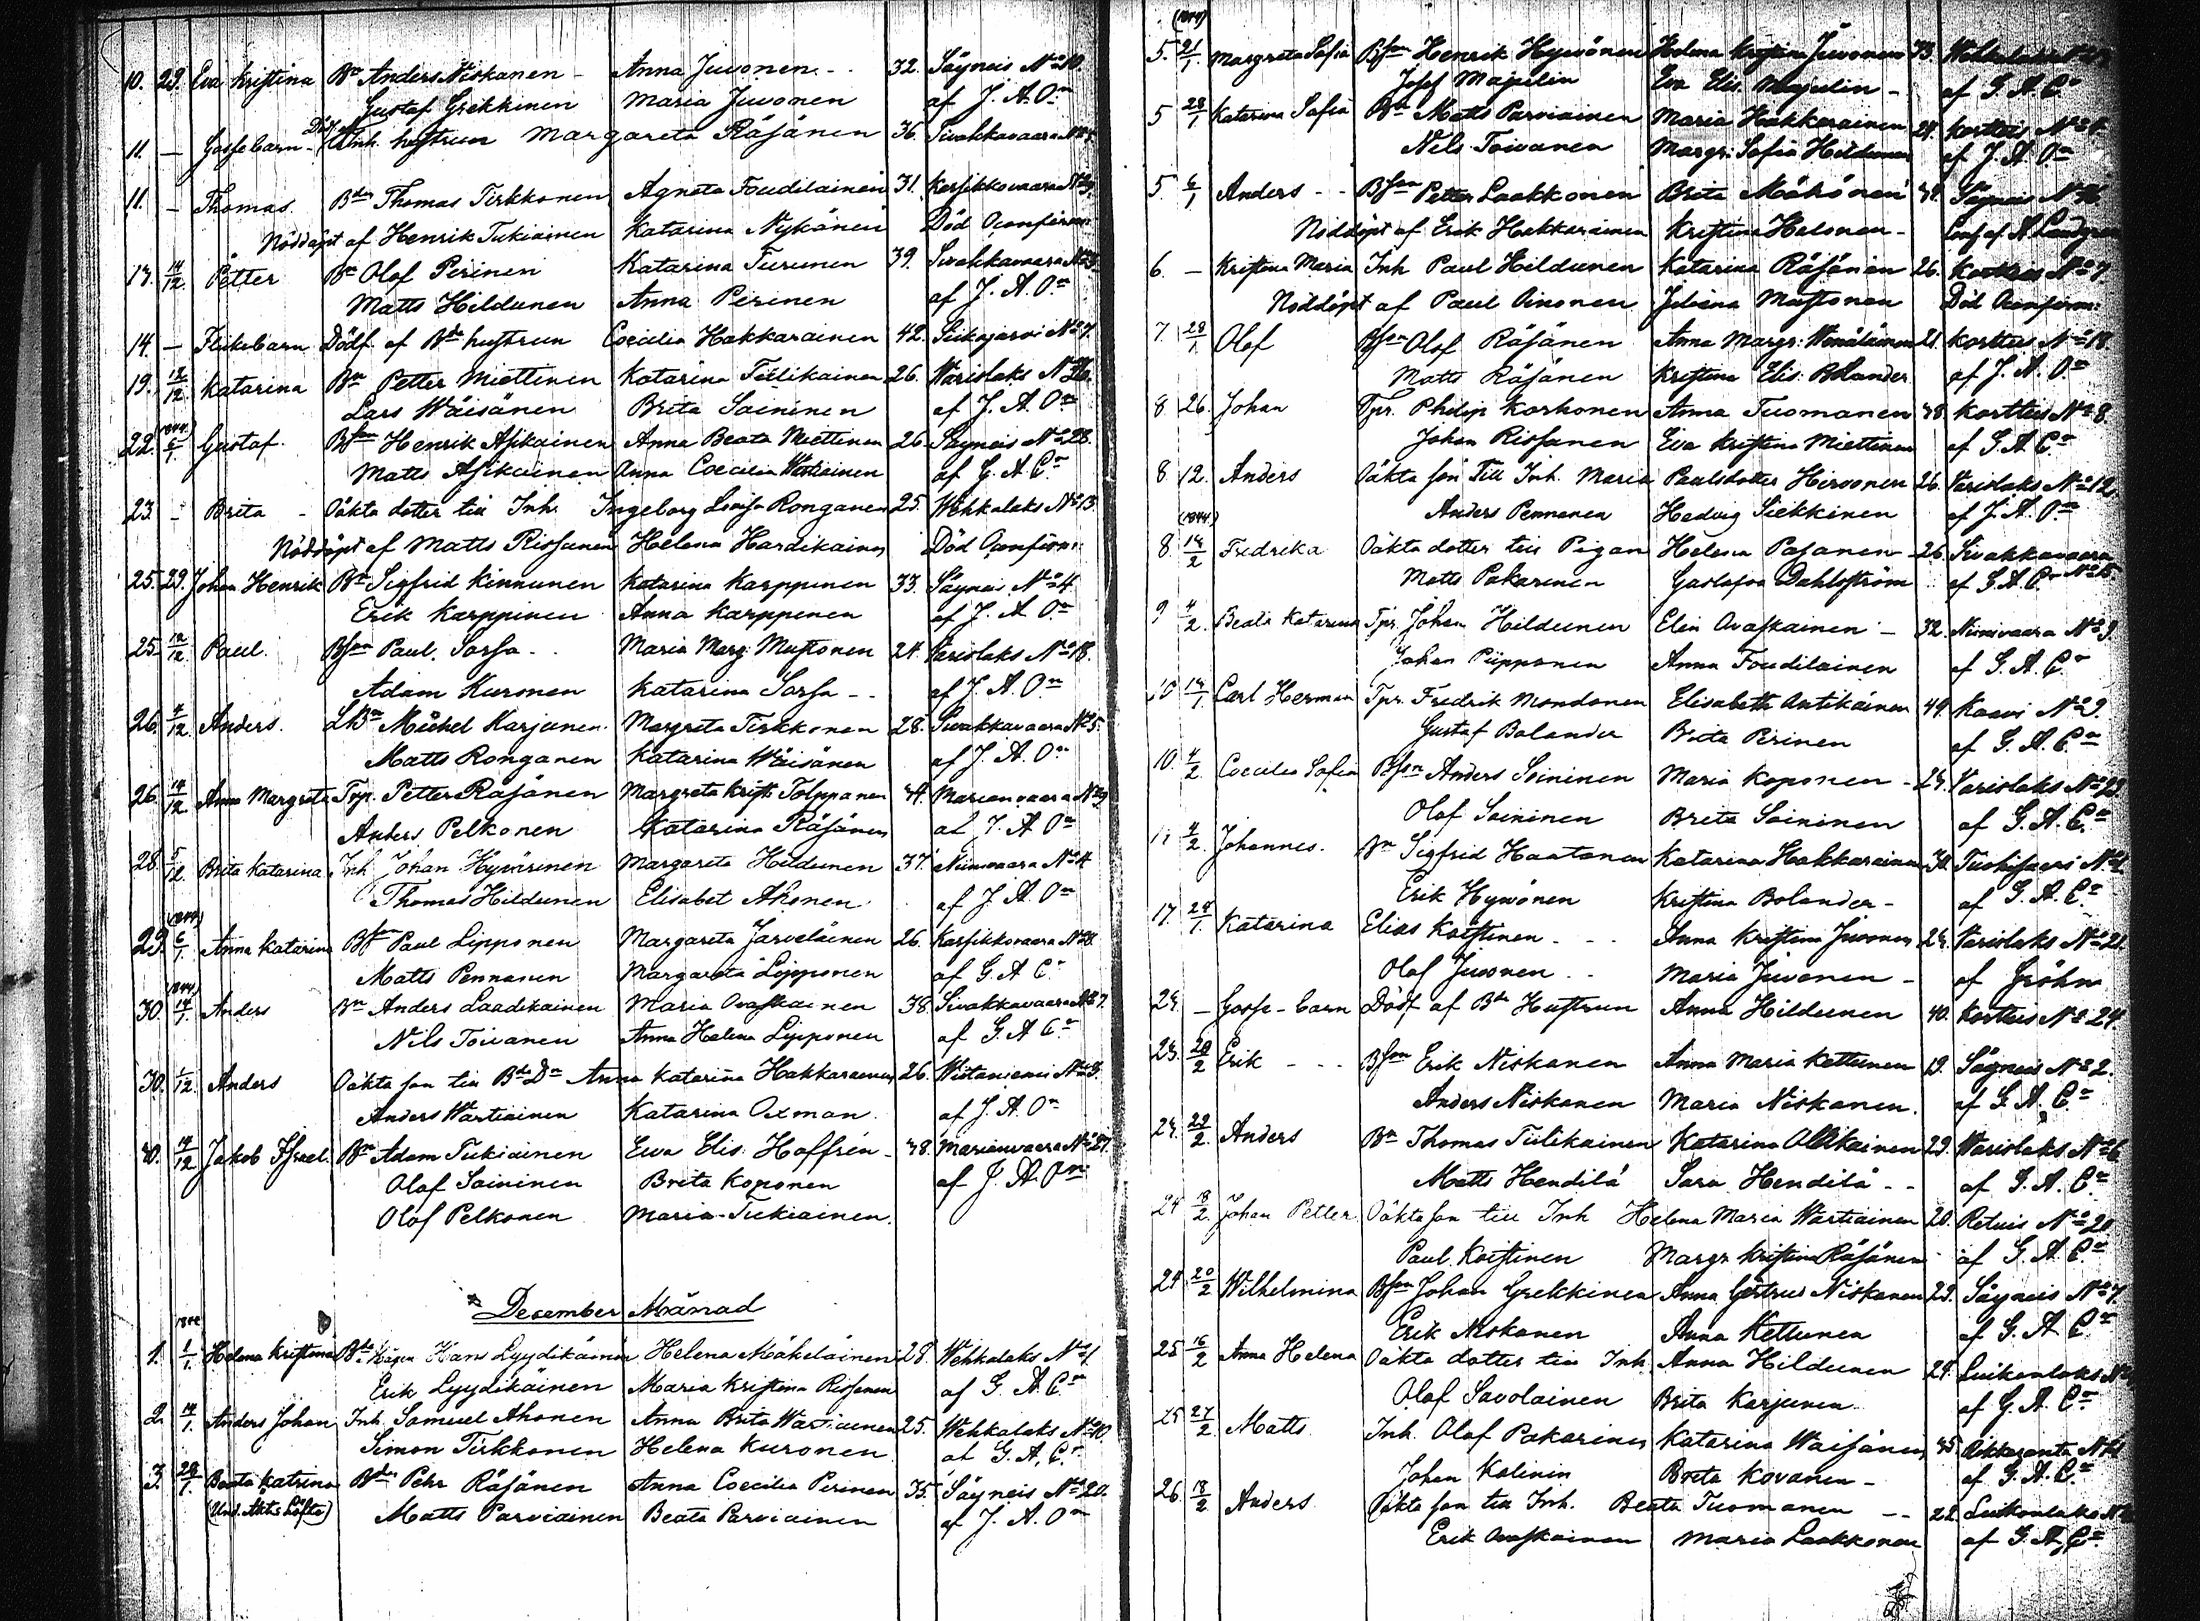 10. 29. Eva Kristina Bn Anders Niskanen - Anna Juvonen - - 32. Säyneis No 10.
Gustaf Grekkinen Maria Juvonen af J. A. On
11. — Gossebarn - Dödf. af Inh. hustrun Margareta Räsänen 36. Sivakkavaara
11. — Thomas. Bdn Thomas Tirkkonen Agneta Foudilainen 31. Karsikkovaara
Nöddöpt af Henrik Tukiainen Katarina Nykänen Död Oconfirm:
13. 14/12. Petter Bn Olof Pirinen Katarina Turunen 39. Sivakkavaara
Matts Hildunen Anna Pirinen af J. A. On
14. — Flickebarn Dödf. af Bds hustrun Coecilia Hakkarainen 42. Siikajärvi No 7.
19. 12/12. Katarina Bn Petter Miettinen Katarina Tiilikainen 26. Varislaks No 26.
Lars Wäisänen Brita Soininen af J. A. On
22. (1844.) 6/1. Gustaf. Bson Henrik Asikainen Anna Beata Miettinen 26. Säyneis No 28.
Matts Asikainen Anna Coecilia Wartiainen af G. A. Cn
23. — Brita - Oäkta dotter till Inh. Ingeborg Lovisa Ronganen 25. Wehkalaks No 13.
Nöddöpt af Matts Rissanen Helena Hardikainen Död Oconfirm:
25. 29. Johan Henrik Bn Sigfrid Kinnunen Katarina Karppinen 33. Säyneis No 4.
Erik Karppinen Anna Karppinen af J. A. On
25. 12/12. Paul. Bson Paul. Sorsa - . Maria Marg. Mustonen 24. Varislaks No 18.
Adam Kuronen Katarina Sorsa - - af J. A. On
26. 4/12. Anders. LBn Mickel Karjunen. Margreta Tirkkonen 28. Sivakkavaara No 5.
Matts Ronganen Katarina Wäisänen af J. A. On
26. 14/12. Anna Margreta Torp. Petter Räsänen Margreta Krist. Tolppanen 34. Marianvaara No 9
Anders Pelkonen Katarina Räsänen af J. A. On
28. 5/12. Brita Katarina Inh. Johan Hyvärinen Margareta Hildunen 37. Niinivaara No 4.
Thomas Hildunen Elisabet Ahonen af J. A. On
29. (1844) 6/1. Anna Katarina Bson Paul Lipponen Margareta Järveläinen 26. Karsikkovaara
Matts Pennanen Margareta Lipponen af G. A. C.n
30. (1844) 14/1. Anders Bn Anders Laadikainen Maria Ovaskainen 38. Sivakkavaara No 7.
Nils Toivanen Anna Helena Lipponen af G. A. Cn
30. 1/12. Anders Oäkta son till Bds Dr Anna Katarina Hakkarainen 26. Wiitaniemi No 3.
Anders Wartiainen Katarina Oxman. af J. A. On
30. 14/12. Jakob Israel. Bn Adam Tukiainen Ewa Elis. Hoffrén - 38. Marianvaara No 27.
Olof Soininen Brita Koponen af J. A. On
Olof Pelkonen Maria Tukiainen.
December Månad
1. 1844 1/1. Helena Kristina Bds Mågen Hans Lyydikäinen Helena Mäkeläinen 28. Wehkalaks No 1.
Erik Lyydikäinen Maria Kristina Rissanen af G. A. Cn
2. 14/1. Anders Johan Inh. Samuel Ahonen Anna Brita Wartiainen 25. Wehkalaks No 10.
Simon Tirkkonen Helena Kuronen af G. A. Cn
3. 28/1. Beata Katrina Bdn Pehr Räsänen Anna Coecilia Pirinen 35. Säyneis No 20.
(Und. Äkts. Löfte) Matts Parviainen Beata Parviainen af J. A. On
(1844)
5. 21/1. Margreta Sofia Bson Henrik Hyvönen Helena Kristina Juvonen 33. Wehkalaks
Josef Majulin Eva Elis. Majulin - af G. A. Cn
5 28/1. Katarina Sofia Bn Matts Parviainen Maria Hakkarainen 24. Kortteis No
Nils Toivanen Margr. Sofia Hildunen af J. A. On
5 6/1 Anders - - Bson Petter Laakkonen Brita Mökönen 34. Säyneis No 16
Nöddöpt af Erik Hakkarainen Kristina Halonen - Conf. af A Landgren
6. — Kristina Maria Inh. Paul Hildunen Katarina Räsänen 26. Kortteis No 7.
Nöddöpt af Paul Ainonen Juliana Mustonen Död Oconfirm:
7. 28/1. Olof Bson Olof Räsänen Anna Margr. Wenäläinen 21. Korttus No 18
Matts Räsänen Kristina Elis. Bolander af J. A. On
8 26. Johan Tpr. Philip Korhonen Anna Tuomanen 38. Korttus No 8.
Johan Rissanen Eva Kristina Miettinen af G. A. Cn
8. 12. Anders Oäkta son till Inh. Maria Paulsdotter Hirvonen 26. Varislaks No 12.
Anders Pennanen Hedvig Siekkinen af J. A. On
(1844.)
8. 14/2 Fredrika Oäkta dotter till Pigan Helena Pasanen - 26. Sivakkavaara
Matts Pakarinen Gustafva Dahlström af G. A. Cn No 15.
9 4/2. Beata Katarina Tpr. Johan Hildunen Elin Ovaskainen - 32. Niinivaara No 9.
Johan Piipponen Anna Foudilainen af G. A. Cn
10 14/1 Carl Herman Tpr. Fredrik Mondonen Elisabeth Antikäinen 44. Kaavi No 9.
Gustaf Bolander Brita Pirinen af G. A. Cn
10. 4/2. Coecilia Sofia Bson Anders Soininen Maria Koponen - 24. Varislaks No 23
Olof Soininen Brita Soininen af G. A. Cn
11 4/2. Johannes. Bn Sigfrid Haatanen Katarina Hakkarainen 30. Tuohijärvi
Erik Hyvönen Kristina Bolander - af G. A. Cn
17. 24/1. Katarina Elias Koistinen - - - Anna Kristina Juvonen 24. Varislaks No 21.
Olof Juvonen - - Maria Juvonen - af Gröhn
24. — Gosse-barn Dödf. af Bds Hustrun Anna Hildunen 40. Korttus No 24
23. 20/2 Erik - - - Bson Erik Niskanen Anna Maria Kettunen 19. Säyneis No 2.
Anders Niskanen Maria Niskanen. af G. A. Cn
24. 23/2. Anders Bn Thomas Tiilikainen Katarina Ollikainen 29. Varislaks No 6
Matts Hendilä Sara Hendilä - - af G. A. Cn
24 18/2. Johan Petter. Oäkta son till Inh Helena Maria Wartiainen 20. Retuis No 20
Paul Koistinen Margr Kristina Räsänen af G. A. Cn
24 20/2 Wilhelmina Bson Johan Grekkinen Anna Gertrud Niskanen 29. Säyneis No 7.
Erik Niskanen Anna Kettunen af G. A. Cn
25 16/2 Anna Helena Oäkta dotter till Inh Anna Hildunen 24. Luikonlaks
Olof Savolainen Brita Karjunen. af G. A. Cn
25 27/2. Matts. Inh. Olof Pakarinen Katarina Waisänen 35. Rikkaranta
Johan Kalinin Brita Kovanen - af G. A. Cn
26. 18/2 Anders Oäkta son till Inh. Beata Tuomanen - - 22. Luikonlaks
Erik Ovaskainen Maria Laakkonen af G. A. Cn